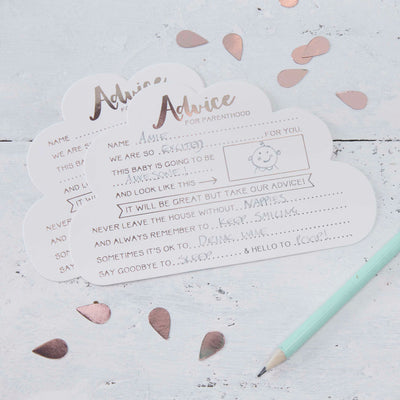 Advice
FOR PARENTHOOD
NAME
WE ARE SO
THIS BABY
AND LOOK
Advice
FOR PARENTHOOD
NAME AMIE
WE ARE SO EXCITED FOR YOU
THIS BABY IS GOING TO BE
AWESOME!
AND LOOK LIKE THIS
IT WILL BE GREAT BUT TAKE OUR ADVICE!
NEVER LEAVE THE HOUSE WITHOUT NAPPIES
AND ALWAYS REMEMBER TO KEEP SMILING
SOMETIMES IT'S OK TO DRINK WINE
SAY GOODBYE TO SLEEP & HELLO TO POOP!